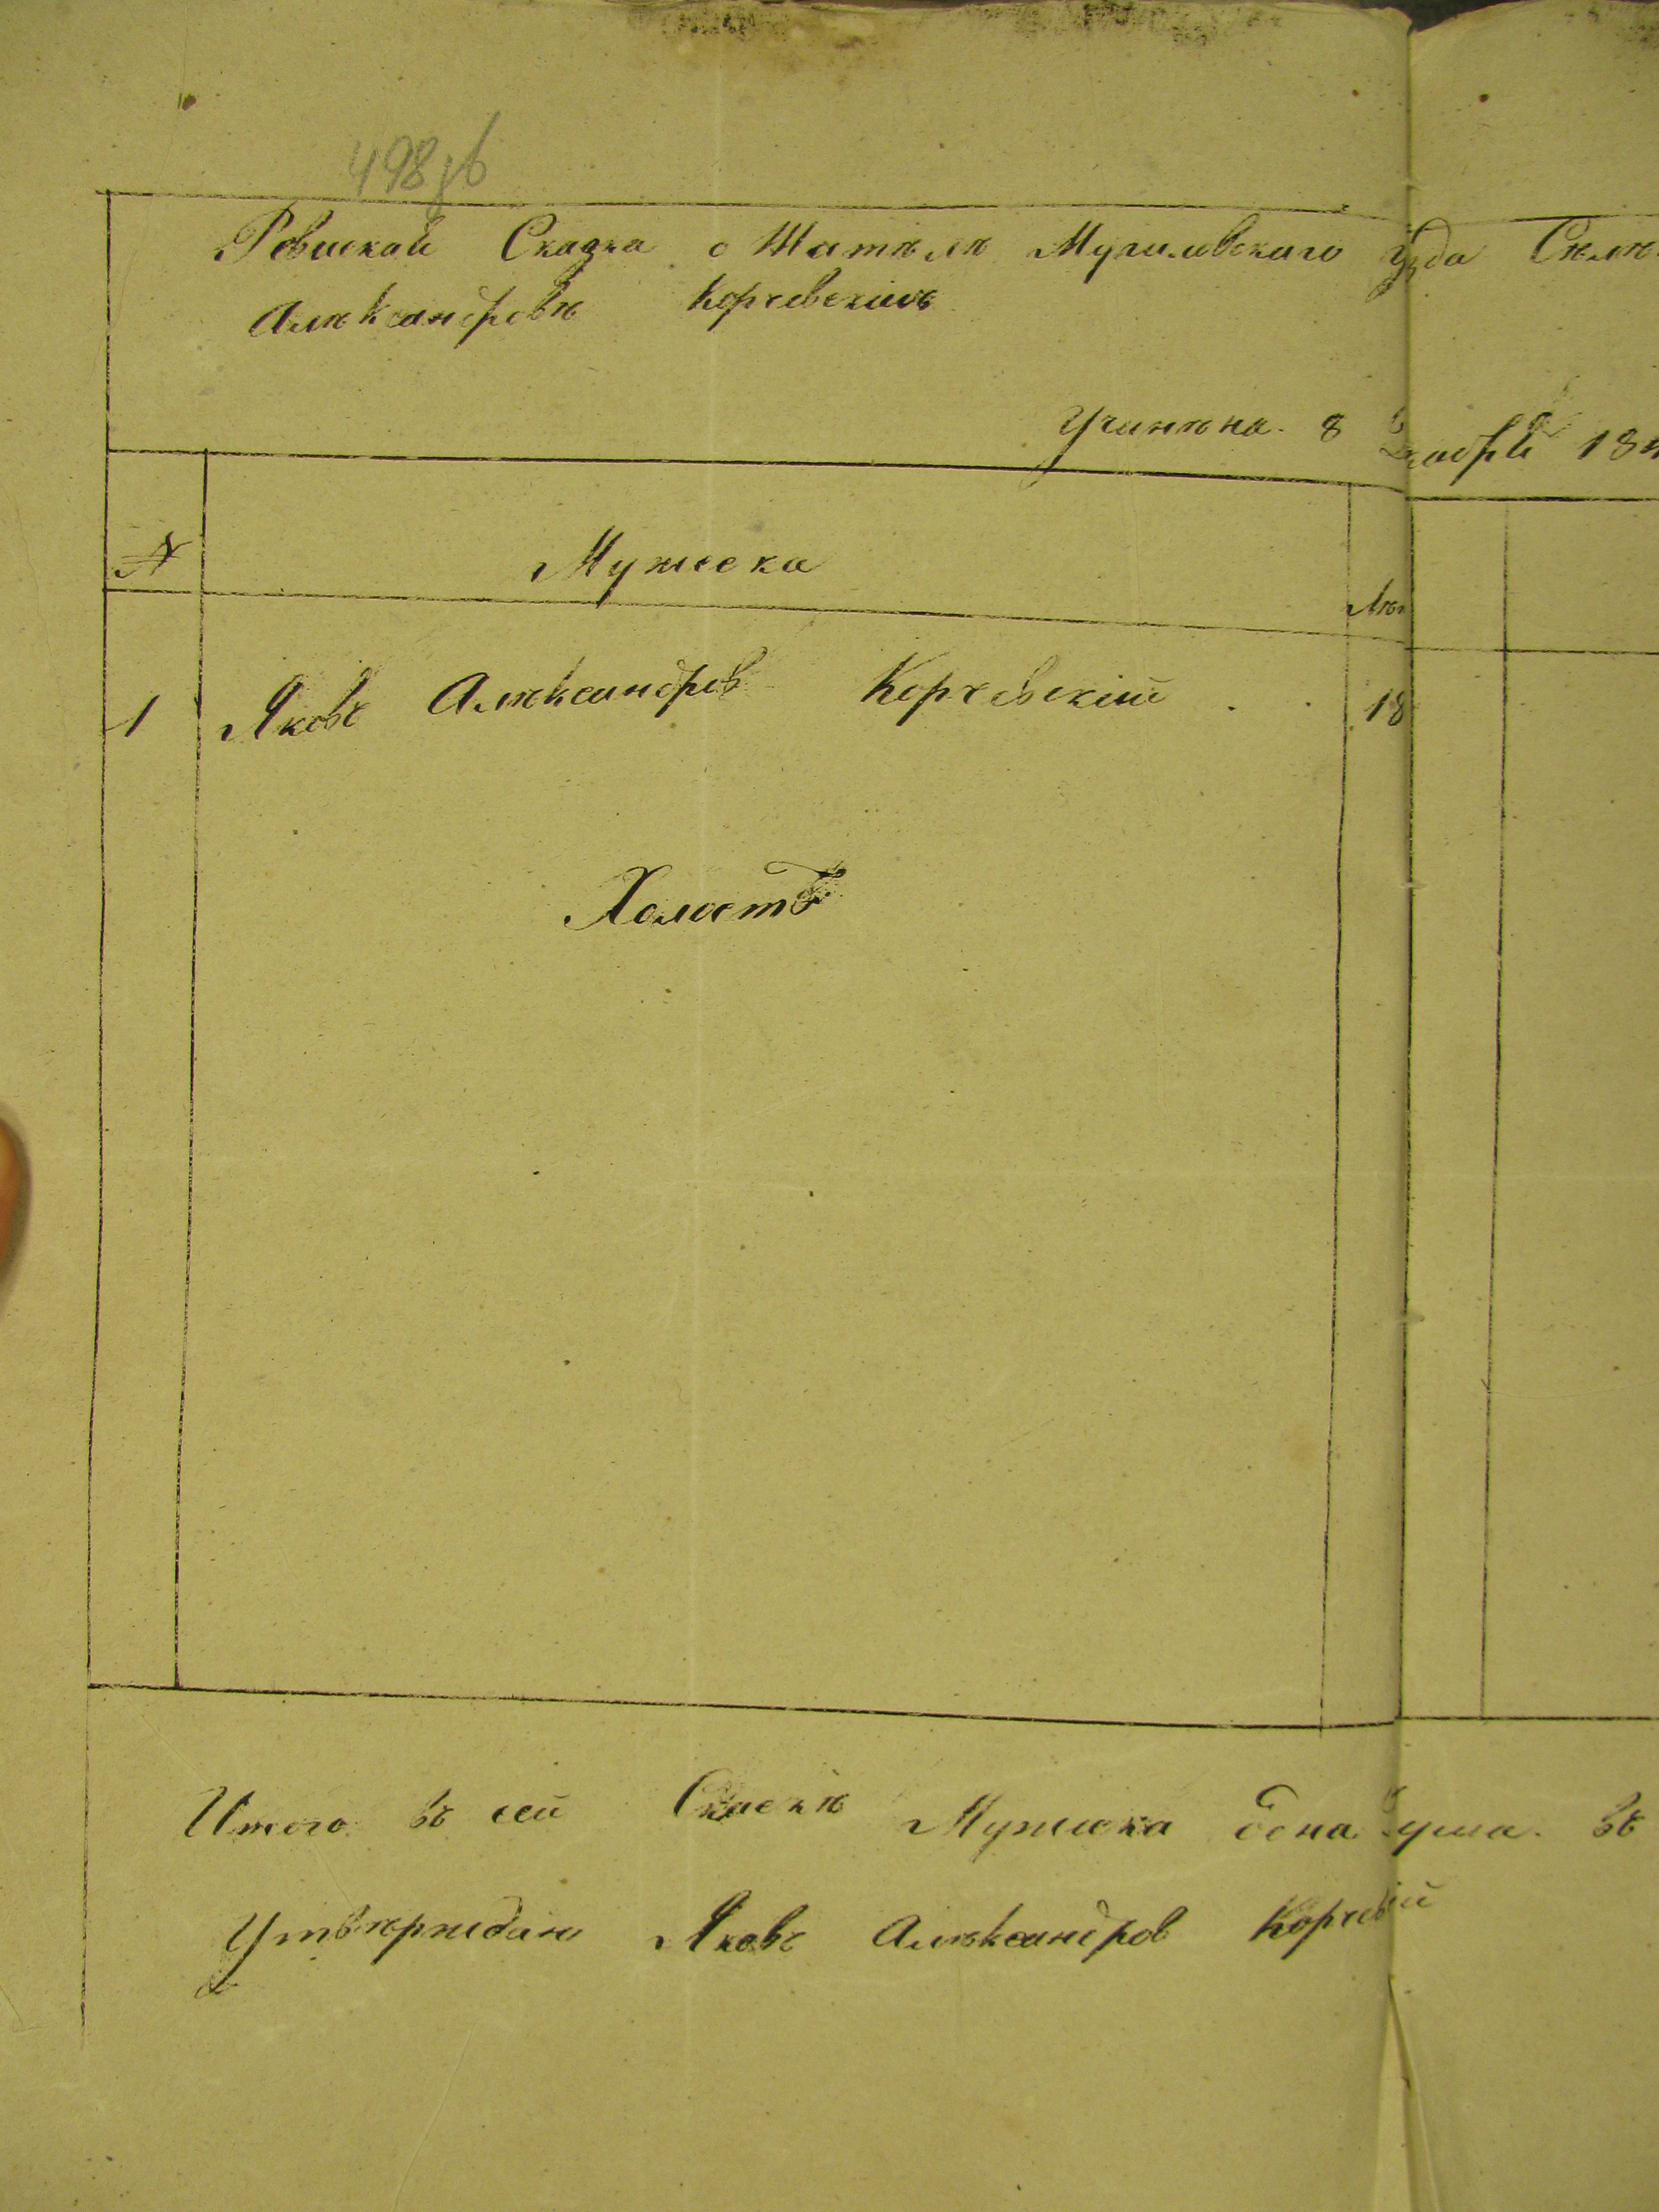 498
Ревиская Сказка о Жателе Мугилевскаго Села
Александрове Корчевским
Учинена. 8 18
№
Мужеска
Лѣт
1 Яковъ Александров Корчевскій . . 18
Холостъ
Итого въ сей Скаске Мужеска една душа. въ
Утверждаю Яковъ Александров